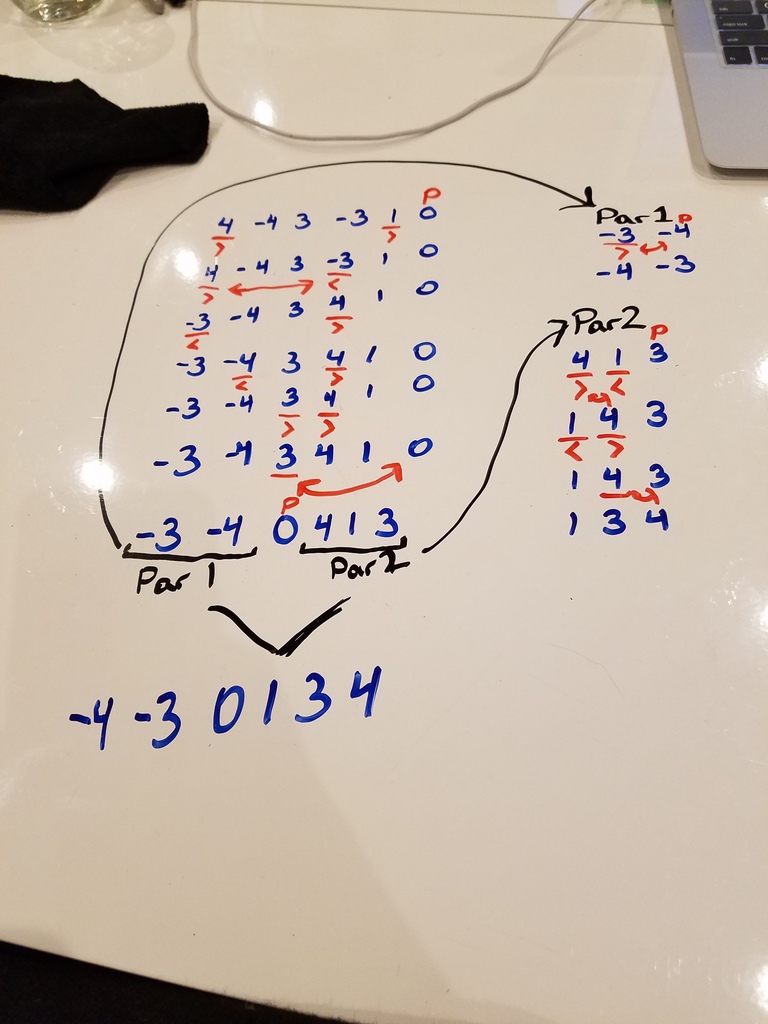 P
4 -4 3 -3 1 0
> >
4 -4 3 -3 1 0
> <
-3 -4 3 4 1 0
< >
-3 -4 3 4 1 0
< >
-3 -4 3 4 1 0
> >
-3 -4 3 4 1 0
P
-3 -4 0 4 1 3
Par 1 Par2
-4 -3 0 1 3 4
Par1 P
-3 -4
>
-4 -3
Par2 P
4 1 3
> <
1 4 3
< >
1 4 3
1 3 4